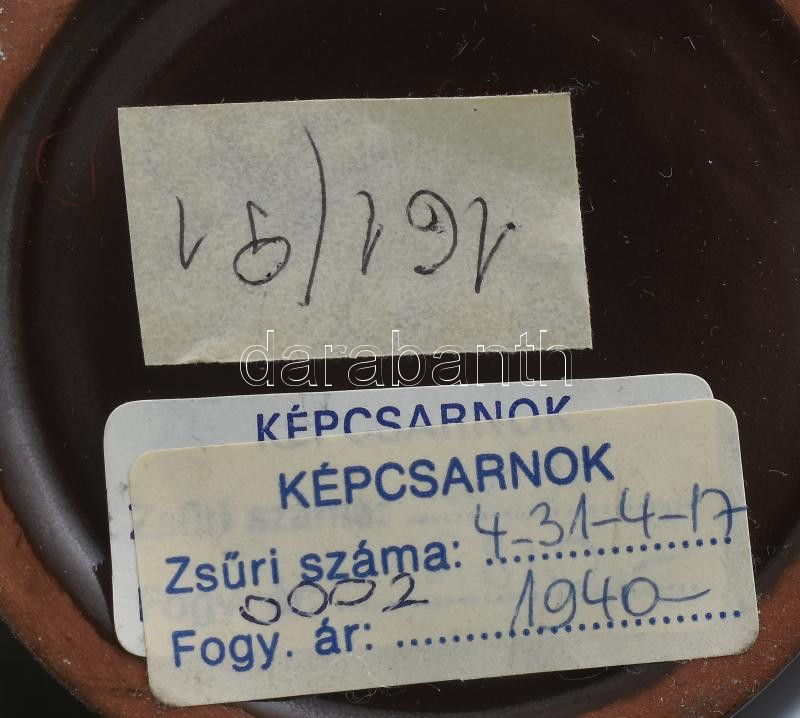 161/91
darabanth
KÉPCSARNOK
KÉPCSARNOK
Zsűri száma: 4-31-4-17
0002
Fogy. ár: 1940-